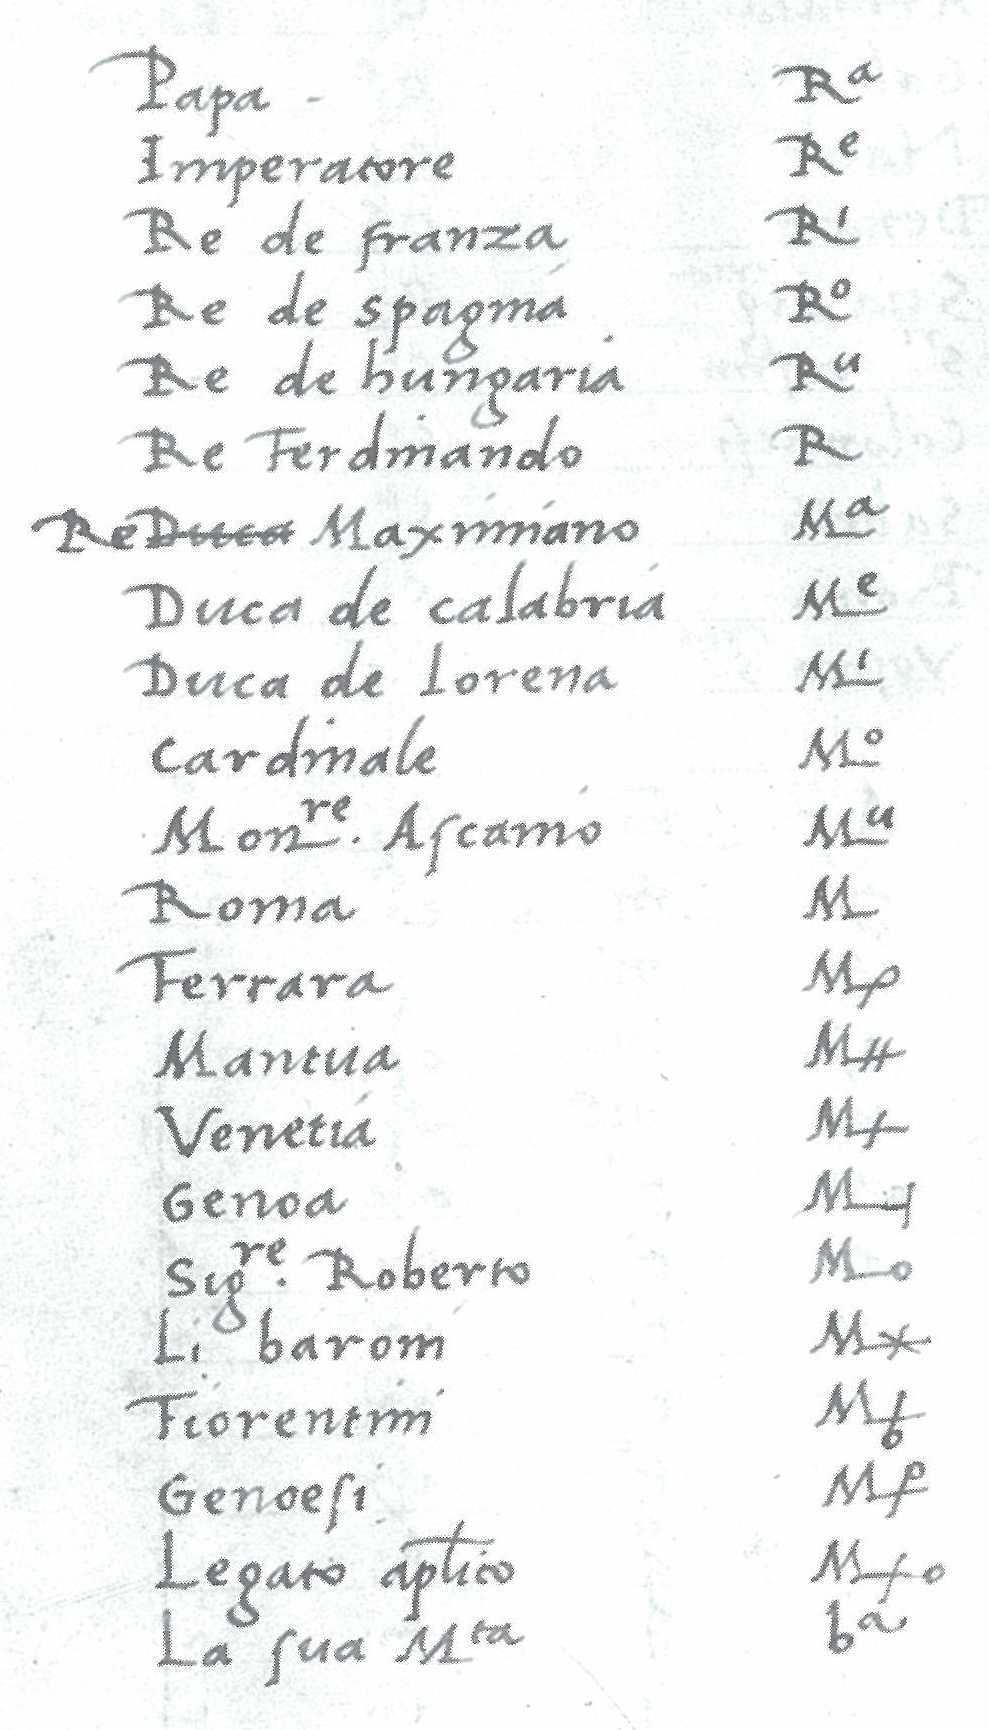 Papa - Rᵃ
Imperatore Rᵉ
Re de franza Rⁱ
Re de spagnia Rᵒ
Re de hungaria Rᵘ
Re Ferdinando R
Re Duca Maximiano Mᵃ
Duca de calabria Mᵉ
Duca de Lorena Mⁱ
Cardinale Mᵒ
Monʳᵉ. Aſcanio Mᵘ
Roma M
Ferrara
Mantua
Venetia
Genoa
Sigʳᵉ. Roberto Mo
Li baroni
Fiorentini
Genoeſi
Legato ap̅lico
La ſua Mᵗᵃ bᵃ